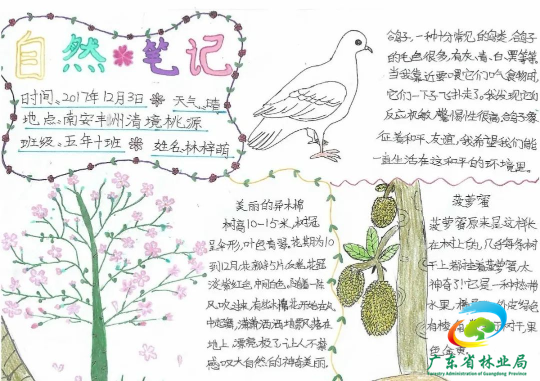 自然笔记
时间、2017年12月3日 天气、晴
地点、南安丰州清境桃源
班级、五年十班 姓名、林梓萌
鸽子,一种十分常见的鸟类,鸽子
的毛色很多,有灰、青、白、黑等等
当我靠近要喂它们吃食物时,
它们一下子飞扑走了,我发现它的
反应机敏,警惕性很高,鸽子象
征着和平、友谊,我希望我们能
一直生活在这和平的环境里。
美丽的异木棉
树高10-15米,树冠
呈伞形,叶色青翠,花期为10
到12月,共
淡紫红色,中间白色,
风吹过来,有些木棉花开始在风
中起舞,潇潇洒洒地飘落在
地上,漂亮极了,让人不禁
感叹大自然的神奇美丽。
菠萝蜜
菠萝蜜原来是这样长
在树上的,几乎每条树
干上都挂着菠萝蜜,太
神奇了!它是一种热带
水果,
有棱角
色金黄。
广东省林业局
Forestry Administration of Guangdong Province